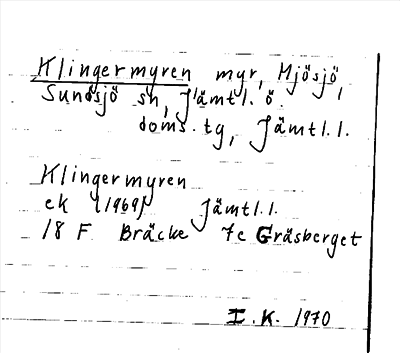 Klingermyren myr, Mjösjö,
Sundsjö sn, Jämtl. ö.
doms. tg, Jämtl. l.
Klingermyren
ek (1969) Jämtl. l.
18 F Bräcke 7e Gräsberget
I. K. 1970